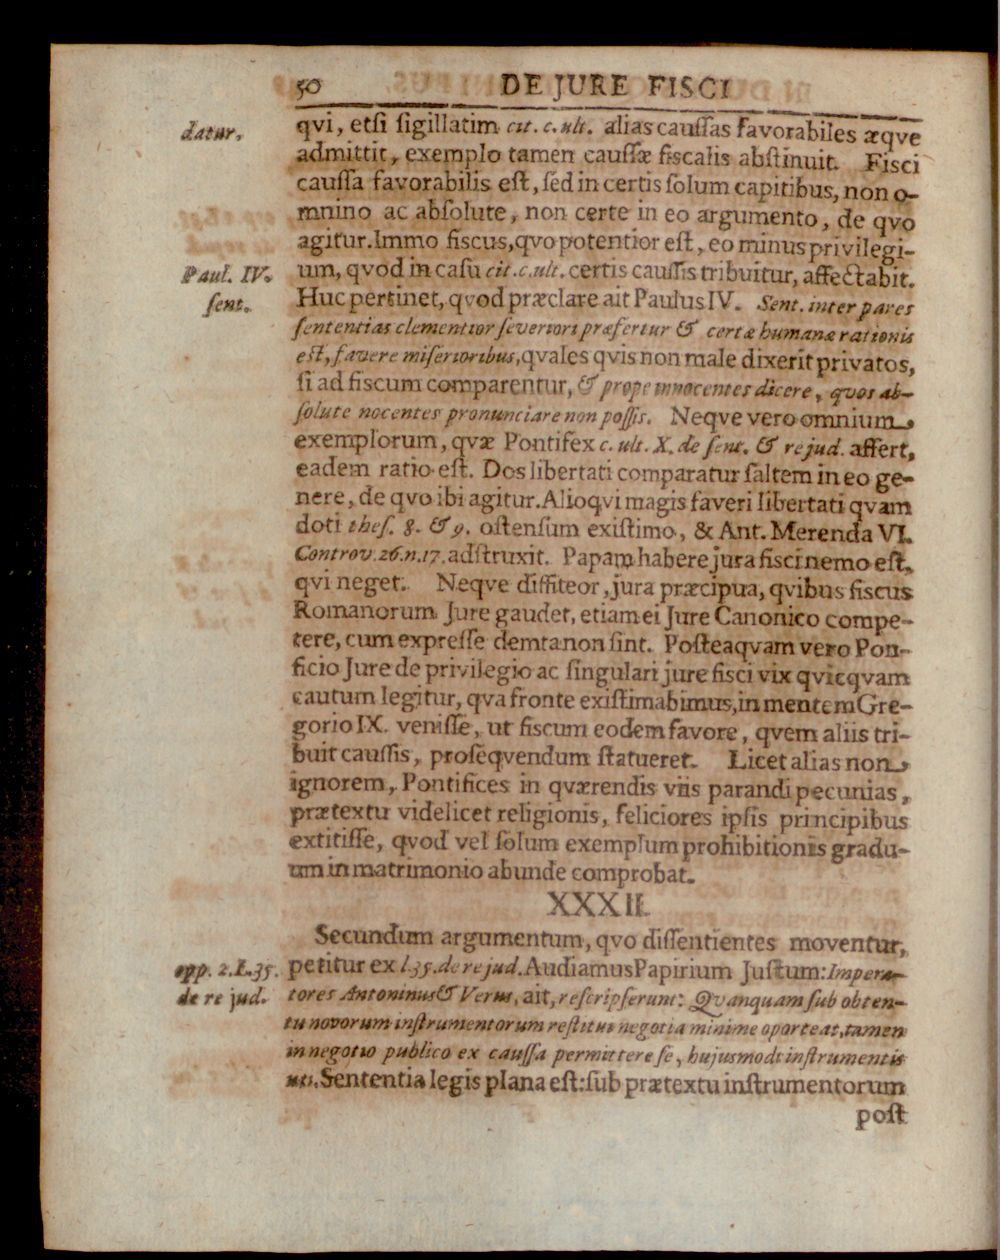 50 DE JURE FISCI
datur.
qvi, etſi ſigillatim cit. c. ult. alias cauſſas favorabiles æqve
admittit, exemplo tamen cauſſæ fiſcalis abſtinuit. Fiſci
cauſſa favorabilis eſt, ſed in certis ſolum capitibus, non o-
mnino ac abſolute, non certe in eo argumento, de qvo
agitur. Immo fiſcus, qvo potentior eſt, eo minus privilegi-
Paul. IV.
ſent.
um, qvod in caſu cit. c. ult. certis cauſſis tribuitur, affectabit.
Huc pertinet, qvod præclare ait Paulus IV. Sent. inter pares
ſententias clementior ſeveriori præfertur & certæ humanæ rationis
eſt, favere miſerioribus, qvales qvis non male dixerit privatos,
ſi ad fiſcum comparentur, & prope innocentes dicere, quos ab-
ſolute nocentes pronunciare non poſſis. Neqve vero omnium
exemplorum, qvæ Pontifex c. ult. X. de ſent. & re jud. affert,
eadem ratio eſt. Dos libertati comparatur ſaltem in eo ge-
nere, de qvo ibi agitur. Alioqvi magis faveri libertati qvam
doti theſ. 8. & 9. oſtenſum exiſtimo, & Ant. Merenda VI.
Controv. 26. n. 17. adſtruxit. Papam habere jura fiſci nemo eſt,
qvi neget. Neqve diffiteor, jura præcipua, qvibus fiſcus
Romanorum Jure gaudet, etiam ei Jure Canonico compe-
tere, cum expreſſe demta non ſint. Poſteaqvam vero Pon-
ficio Jure de privilegio ac ſingulari jure fiſci vix qvicqvam
cautum legitur, qva fronte exiſtimabimus, in mentem Gre-
gorio IX. veniſſe, ut fiſcum eodem favore, qvem aliis tri-
buit cauſſis, proſeqvendum ſtatueret. Licet alias non
ignorem, Pontifices in qværendis viis parandi pecunias,
prætextu videlicet religionis, feliciores ipſis principibus
extitiſſe, qvod vel ſolum exemplum prohibitionis gradu-
um in matrimonio abunde comprobat.
XXXII.
Secundum argumentum, qvo diſſentientes moventur,
opp. 2. L. 35.
de re jud.
petitur ex l. 35. de re jud. Audiamus Papirium Juſtum: Impera-
tores Antoninus & Verus, ait, reſcripſerunt: Quanquam ſub obten-
tu novorum inſtrumentorum reſtitui negotia minime oporteat, tamen
in negotio publico ex cauſſa permittere ſe, hujusmodi inſtrumentis
uti. Sententia legis plana eſt: ſub prætextu inſtrumentorum
poſt